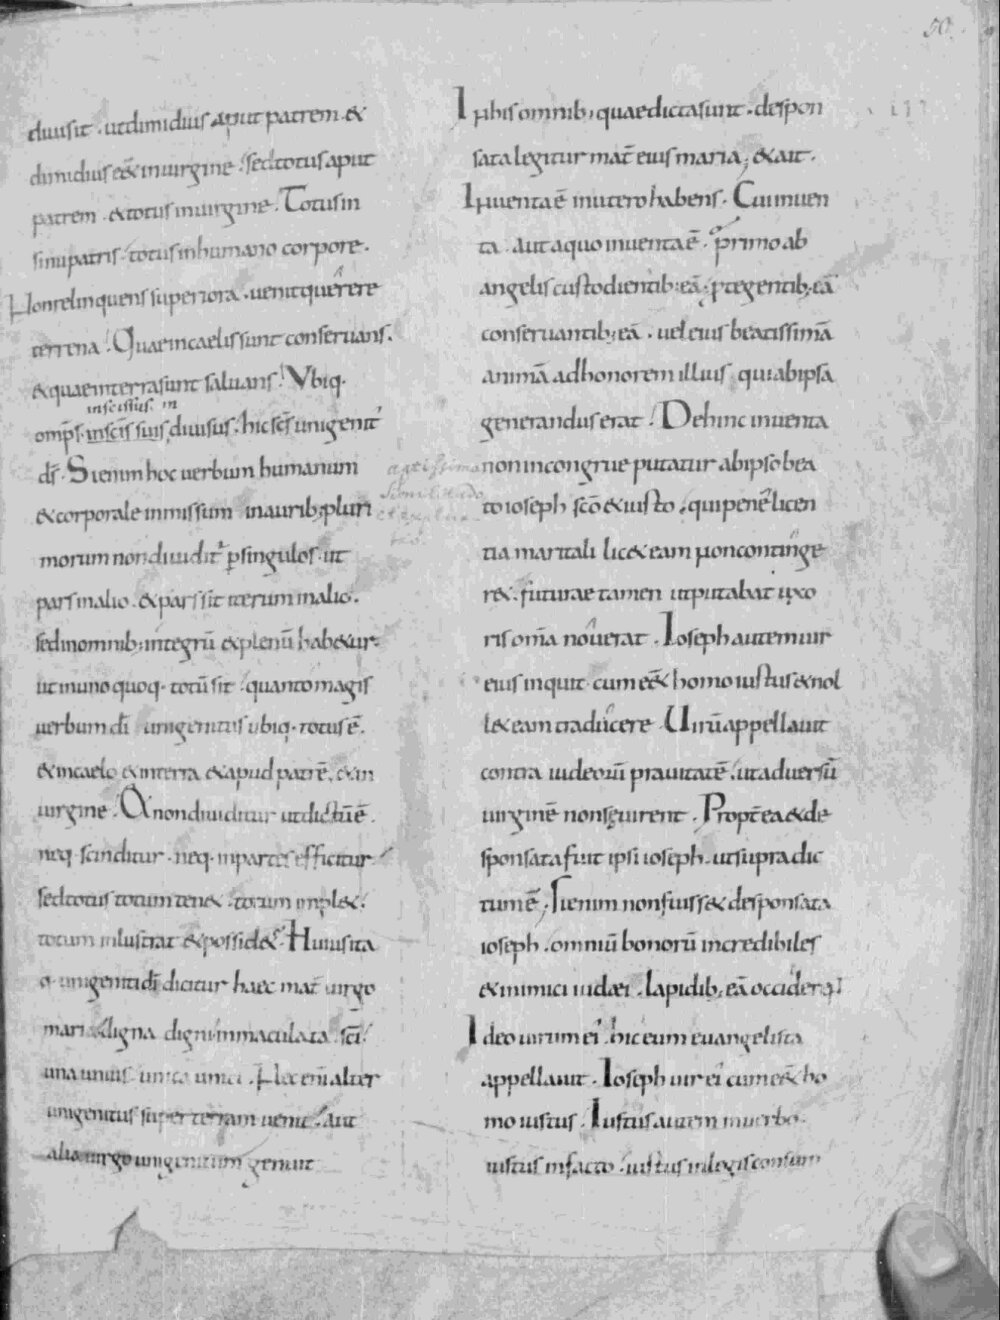 50
diuisit · ut dimidius aput patrem &
dimidius eēt in uirgine · sed totus aput
patrem · & totus in uirgine · Totus in
sinu patris · totus in humano corpore ·
Non relinquens superiora · uenit querere
terrena · Quae in caelis sunt conseruans ·
& quae in terra sunt saluans · Vbiq·
inscissus in
omp̄s · inscis suis diuisus · hic sc̄s unigenit'
ds̄ · Si enim hoc uerbum humanum
& corporale inmissum in aurib; pluri
morum non diuidit' p singulos · ut
pars in alio · & pars sit iterum in alio ·
sed in omnib; integrū & plenū habetur
ut in uno quoq· totū sit · quanto magis
uerbum dī unigenitus ubiq· totus ē ·
& in caelo & in terra & apud patrē · & in
uirgine · Qa non diuiditur ut dictū ē ·
neq· scinditur · neq· in partes efficitur
sed totus totum ten& · totum impl& ·
totum inlustrat & possid& · Huius ita
q· unigeniti dī dicitur haec mat̄ uirgo
maria · digna digni · inmaculata sc̄i ·
una unius · unica unici · Nec enī alter
unigenitus super terram uenit · aut
alia uirgo unigenitum genuit
aptissima
similitudo
In his omnib; quae dicta sunt · despon
sata legitur mat̄ eius maria; & ait ·
Inuenta ē in utero habens · Cui inuen
ta · aut a quo inuenta ē · primo ab
angelis custodientib; eā · ptegentib; eā
conseruantib; eā · uel eius beatissimā
animā ad honorem illius qui ab ipsā
generandus erat · Dehinc inuenta
non incongrue putatur ab ipso bea
to ioseph sc̄o & iusto · qui pene licen
tia maritali lic& eam non continge
r& · futurae tamen ut putabat uxo
ris om̄a nouerat · Ioseph autem uir
eius inquit · cum ēet homo iustus & nol
l& eam traducere · Uirū appellauit
contra iudeorū prauitatē · ut aduersū
uirginē non seuirent · Propt̄ ea & de
sponsata fuit ipsi ioseph · ut supra dic
tum ē · Si enim non fuiss& desponsata
ioseph · omniū bonorū incredibiles
& inimici iudaei · lapidib; eā occiderent
Ideo uirum ei' hic eum euangelista
appellauit · Ioseph uir ei' cum ēet ho
mo iustus · Iustus autem in uerbo ·
iustus in facto · iustus in legis consum